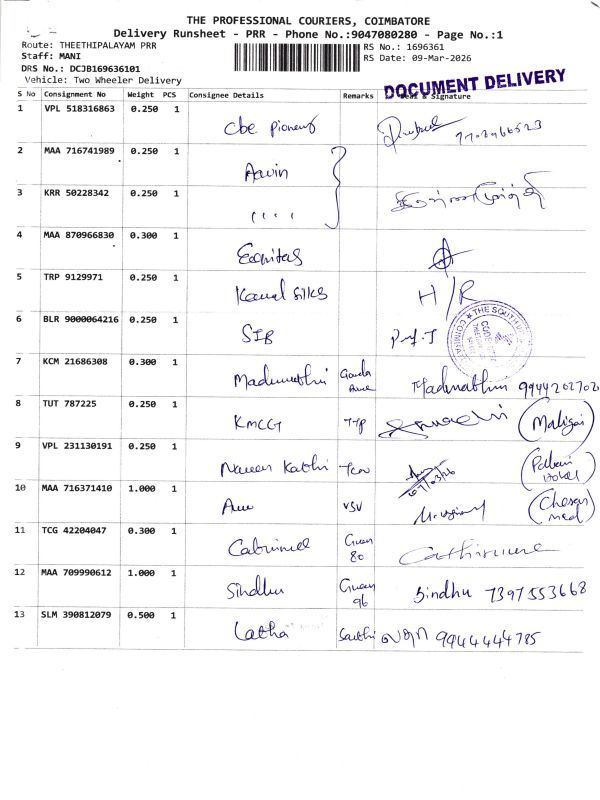 THE PROFESSIONAL COURIERS, COIMBATORE
Delivery Runsheet - PRR - Phone No.:9047080280 - Page No.:1
Route: THEETHIPALAYAM PRR
RS No.: 1696361
Staff: MANI
RS Date: 09-Mar-2026
DRS No.: DCJB169636101
Vehicle: Two Wheeler Delivery
DOCUMENT DELIVERY
S No Consignment No Weight PCS Consignee Details Remarks & Signature
1 VPL 518316863 0.250 1 Cbe Pioneer
2 MAA 716741989 0.250 1 Aavin
3 KRR 50228342 0.250 1 ,, ,,
4 MAA 870966830 0.300 1 Equitas
5 TRP 9129971 0.250 1 Kamal Silks H/R
6 BLR 9000064216 0.250 1 SIB
7 KCM 21686308 0.300 1 9944202702
8 TUT 787225 0.250 1 KMCGT TTP (Maligai)
9 VPL 231130191 0.250 1 Naveen Kathi
10 MAA 716371410 1.000 1 VSV
11 TCG 42204047 0.300 1 80
12 MAA 709990612 1.000 1 Sindhu 96 Sindhu 7397553668
13 SLM 390812079 0.500 1 Latha Sakthi லதா 9944444785